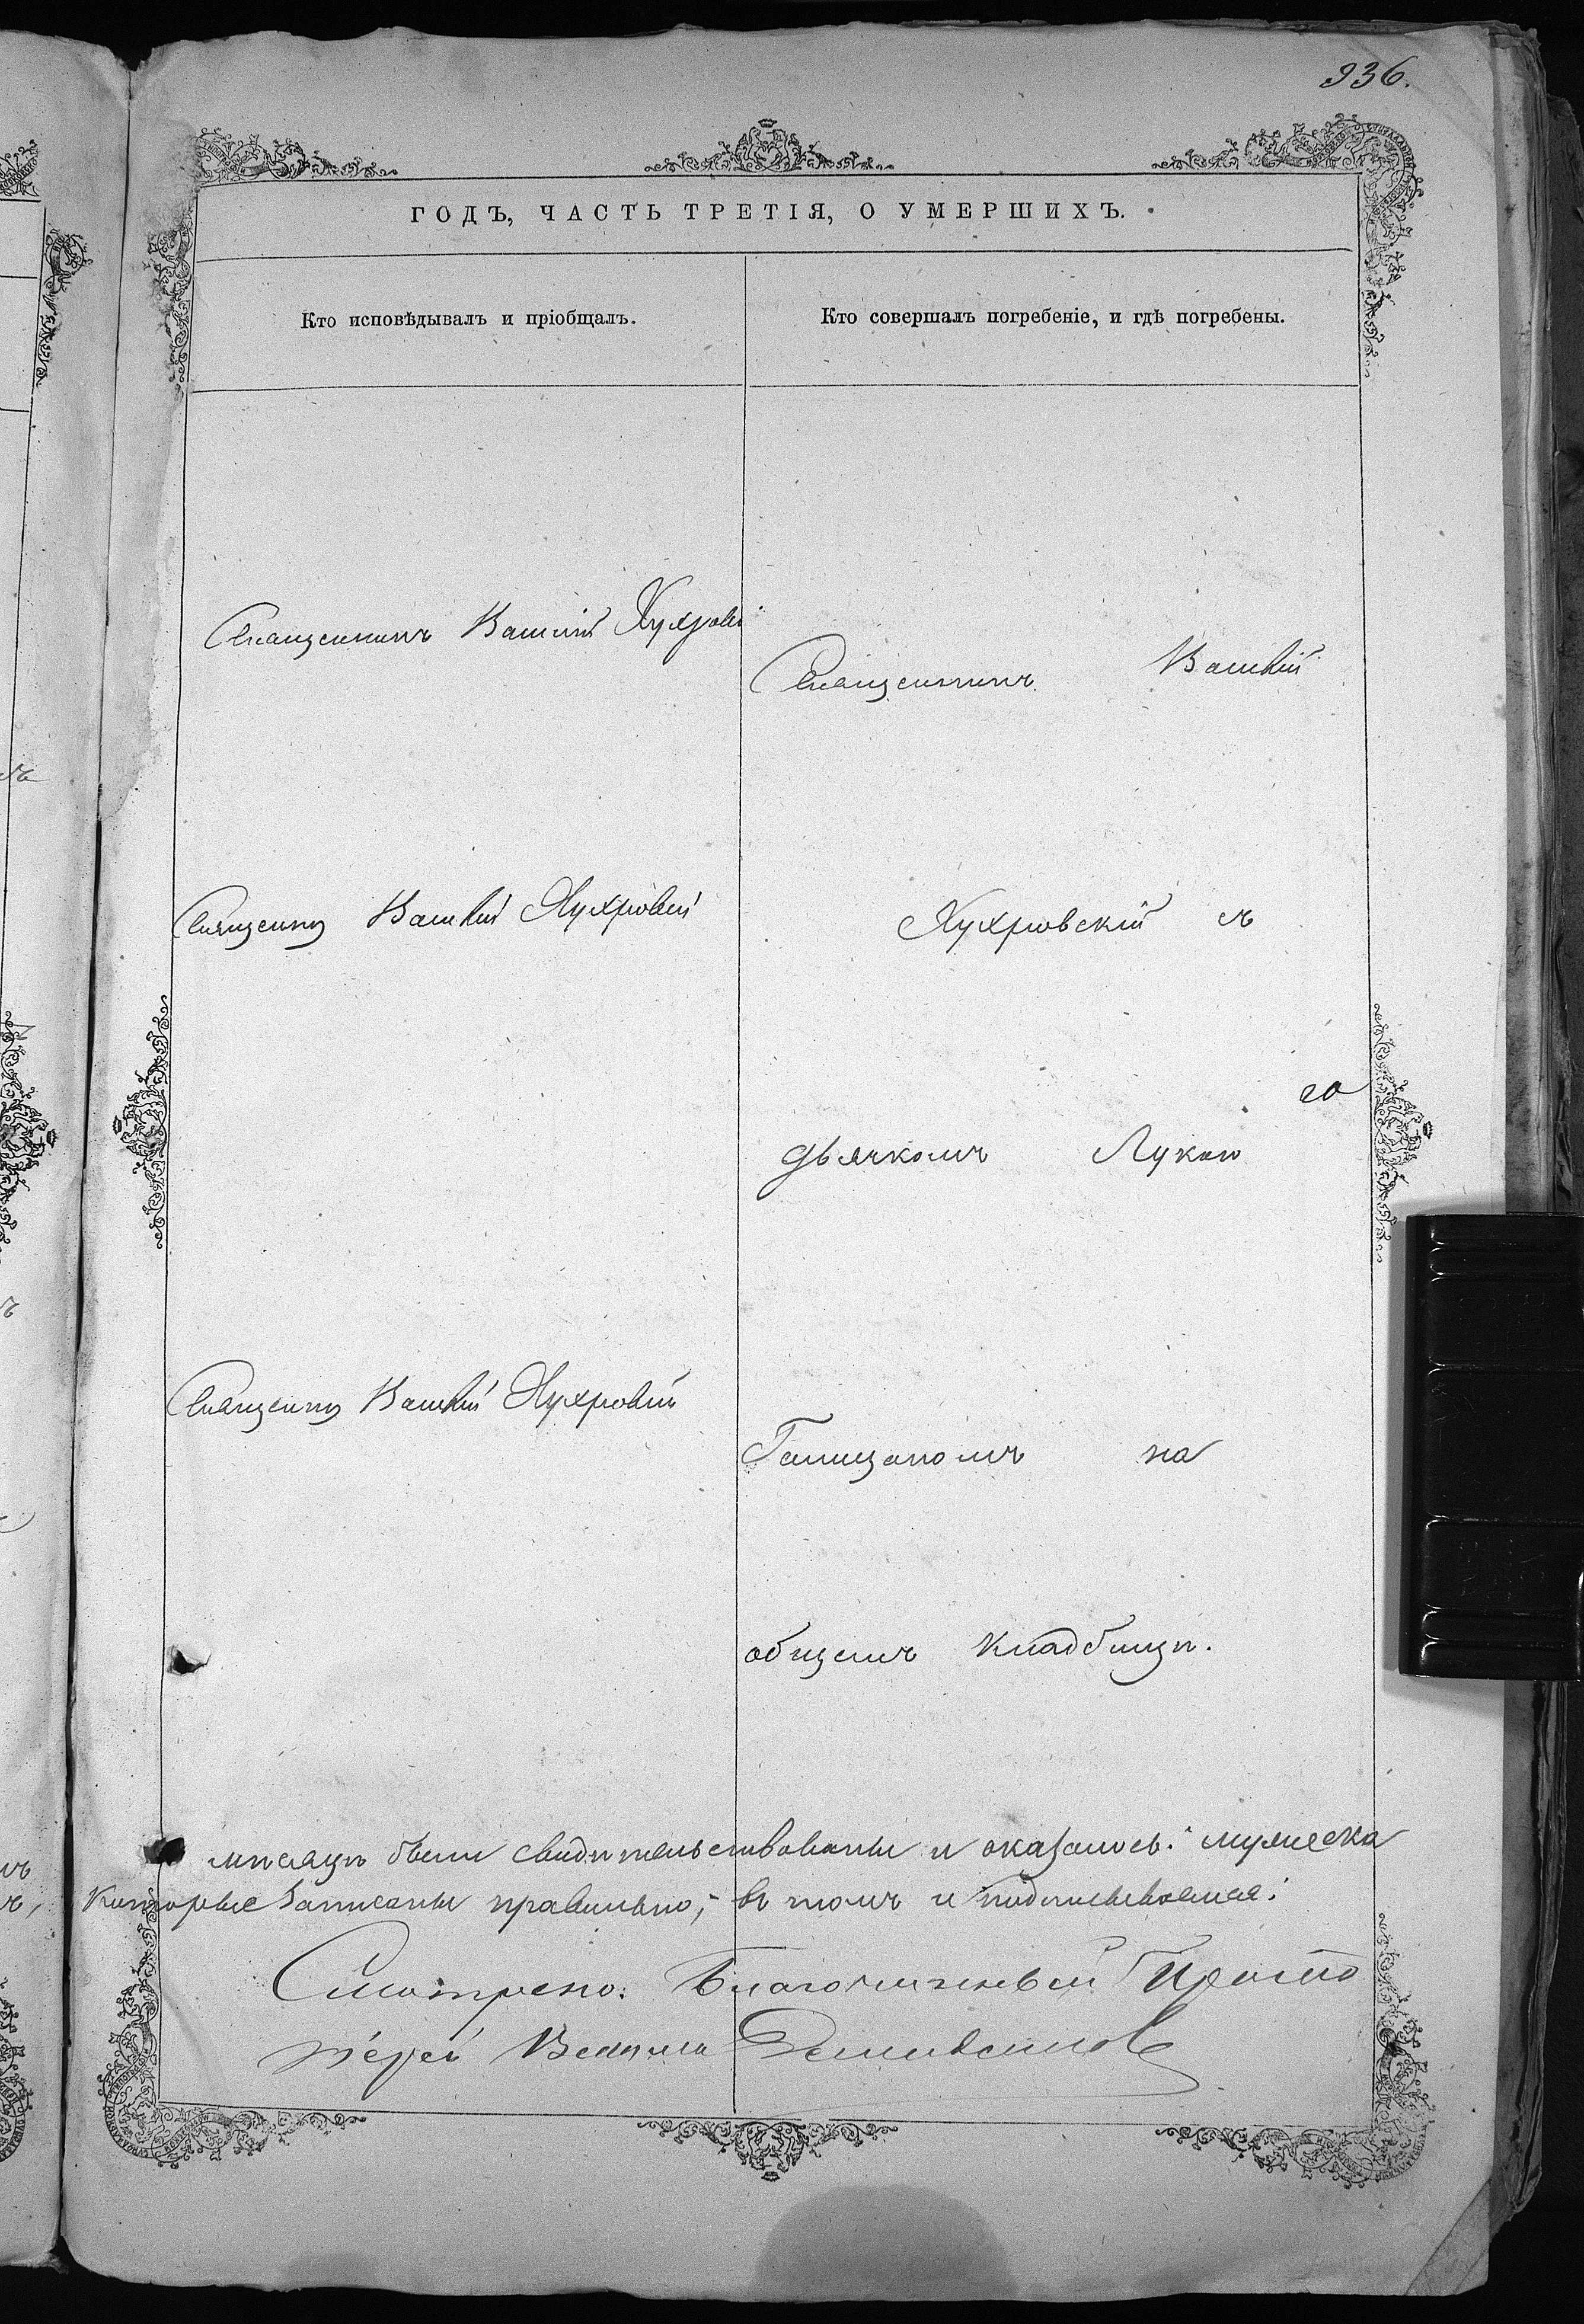 936.
ГОДЪ, ЧАСТЬ ТРЕТІЯ, О УМЕРШИХЪ.
Кто исповѣдывалъ и пріобщалъ.
Кто совершалъ погребеніе, и гдѣ погребены.
Священникъ Василій
Священникъ Василій
Священ Василій
съ
го
дьячкомъ Лукою
Священ Василій
на
общемъ кладбищѣ.
мѣсяцъ были свидѣтельствованы и оказалось: мужеска
которые записаны правильно, въ томъ и подписываемся:
Смотрено: Благочинный Прото
іерей